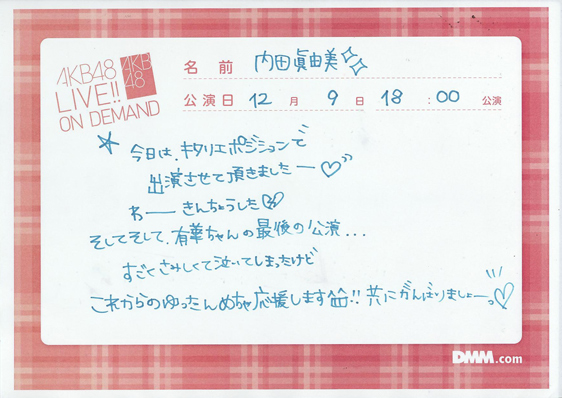 AKB48
LIVE!!
ON DEMAND
AKB
48
名前 内田眞由美
公演日 12月 9日 18:00 公演
今日は、キタリエポジションで
出演させて頂きましたー
わーーきんちょうした
そしてそして、有華ちゃんの最後の公演...
すごくさみしくて泣いてしまったけど
これからのゆったんめちゃ応援します!! 共にがんばりましょーっ
DMM.com